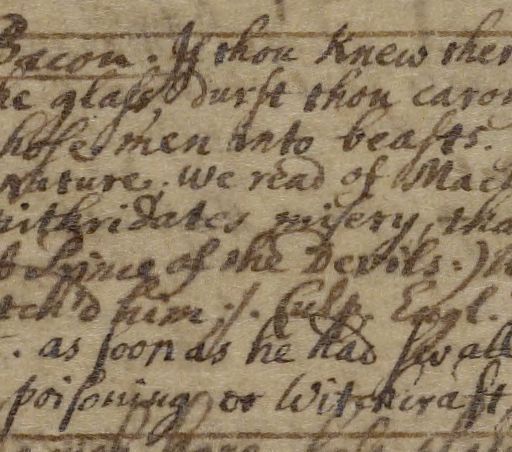 Bacon. If thou knew ther
he glass, durst thou carou
hose men into beasts.
Nature. We read of Mach
ithridates misery, tha
t Prince of the Devils:)
tch'd him:/. Culp. Engl.
. as soon as he had swall
poisoning or Witchcraft,